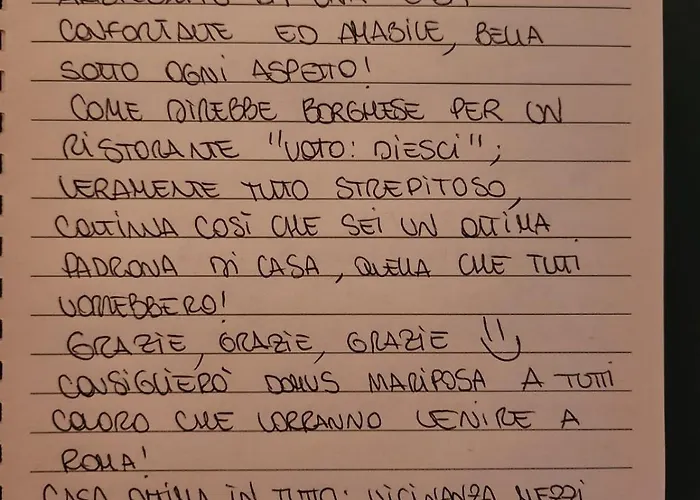 CONFORTANTE ED AMABILE, BELLA
SOTTO OGNI ASPETTO!
COME DIREBBE BORGHESE PER UN
RISTORANTE "VOTO: DIESCI";
VERAMENTE TUTTO STREPITOSO,
CONTINUA COSÌ CHE SEI UN OTTIMA
PADRONA DI CASA, QUELLA CHE TUTTI
VORREBBERO!
GRAZIE, GRAZIE, GRAZIE
CONSIGLIERÒ DOMUS MARIPOSA A TUTTI
COLORO CHE VORRANNO VENIRE A
ROMA!
CASA OTTIMA IN TUTTO: VICINANZA MEZZI